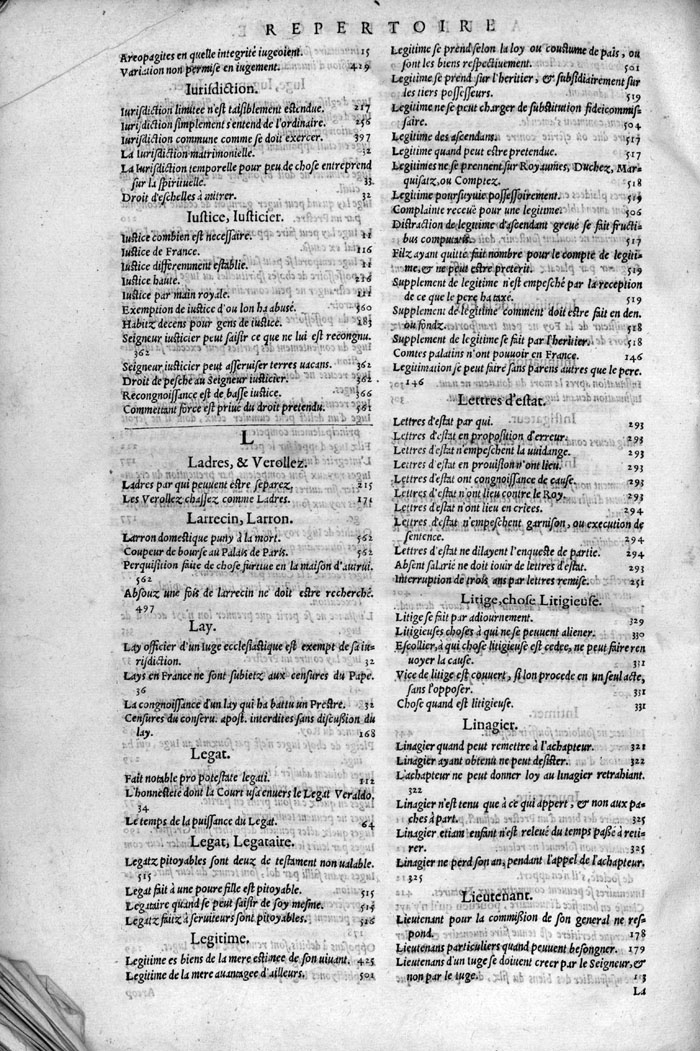 REPERTOIRE
Areopagites en quelle integrité iugeoient. 15
Variation non permise en iugement. 429
Iurisdiction.
Iurisdiction limitee n'est taisiblement estendue. 217
Iurisdiction simplement s'entend de l'ordinaire. 256
Iurisdiction commune comme se doit exercer. 397
La iurisdiction matrimonielle. 32
La iurisdiction temporelle pour peu de chose entreprend
sur la spirituelle. 33
Droit d'eschelles à mitrer. 32
Iustice, Iusticier.
Iustice combien est necessaire. 11
Iustice de France. 116
Iustice differemment establie. 11
Iustice haute. 216
Iustice par main royale. 111
Exemption de iustice d'ou lon ha abusé. 360
Habitz decens pour gens de iustice. 283
Seigneur iusticier peut saisir ce que ne lui est recongnu.
362
Seigneur iusticier peut asseruiser terres vacans. 362
Droit de pesche au Seigneur iusticier. 362
Recongnoissance est de basse iustice. 366
Commettant force est priué du droit pretendu. 561
L
Ladres, & Verollez.
Ladres par qui peuuent estre separez. 215
Les Verollez chassez comme Ladres. 171
Larrecin, Larron.
Larron domestique puny à la mort. 562
Coupeur de bourse au Palais de Paris. 562
Perquisition faite de chose furtiue en la maison d'autrui.
562
Absouz une fois de larrecin ne doit estre recherché.
497
Lay.
Lay officier d'un iuge ecclesiastique est exempt de sa iu-
risdiction. 32
Lays en France ne sont subietz aux censures du Pape.
36
La congnoissance d'un lay qui ha battu un Prestre. 32
Censures du conseru. apost. interdites sans discussion du
lay. 168
Legat.
Fait notable pro potestate legati. 112
L'honnesteté dont la Court usa enuers le Legat Veraldo.
34
Le temps de la puissance du Legat. 64
Legat, Legataire.
Legatz pitoyables sont deuz de testament non valable.
515
Legat fait à une poure fille est pitoyable. 515
Legataire quand se peut saisir de soy mesme. 514
Legatz faitz à seruiteurs sont pitoyables. 516
Legitime.
Legitime es biens de la mere estincee de son viuant. 425
Legitime de la mere auantagee d'ailleurs. 501
Legitime se prend selon la loy ou coustume de païs, ou
sont les biens respectiuement. 501
Legitime se prend sur l'heritier, & subsidiairement sur
les tiers possesseurs. 519
Legitime ne se peut charger de substitution fideicommis
saire. 504
Legitime des ascendans. 517
Legitime quand peut estre pretendue. 517
Legitimes ne se prennent sur Royaumes, Duchez, Mar-
quisatz, ou Comptez. 518
Legitime poursuyuie possessoirement. 519
Complainte receuë pour une legitime. 506
Distraction de legitime d'ascendant greué se fait fructi-
bus computatis. 517
Filz ayant quitté fait nombre pour le compte de legiti-
me, & ne peut estre preterit. 519
Supplement de legitime n'est empesché par la reception
de ce que le pere ha taxé. 519
Supplement de legitime comment doit estre fait en den.
ou fondz. 518
Supplement de legitime se fait par l'heritier. 518
Comtes palatins n'ont pouuoir en France. 146
Legitimation se peut faire sans parens autres que le pere.
146
Lettres d'estat.
Lettres d'estat par qui. 293
Lettres d'estat en proposition d'erreur. 293
Lettres d'estat n'empeschent la uuidange. 293
Lettres d'estat en prouision n'ont lieu. 293
Lettres d'estat ont congnoissance de cause. 293
Lettres d'estat n'ont lieu contre le Roy. 293
Lettres d'estat n'ont lieu en criees. 294
Lettres d'estat n'empeschent garnison, ou execution de
sentence. 294
Lettres d'estat ne dilayent l'enqueste de partie. 294
Absent salarié ne doit iouir de lettres d'estat. 293
Interruption de trois ans par lettres remise. 251
Litige, chose Litigieuse.
Litige se fait par adiournement. 329
Litigieuses choses à qui ne se peuuent aliener. 330
Escollier, à qui chose litigieuse est cedee, ne peut faire ren
uoyer la cause. 331
Vice de litige est couuert, si lon procede en un seul acte,
sans l'opposer. 331
Chose quand est litigieuse. 331
Linagier.
Linagier quand peut remettre à l'achapteur. 321
Linagier ayant obtenu ne peut desister. 322
L'achapteur ne peut donner loy au linagier retrahiant.
322
Linagier n'est tenu que à ce qui appert, & non aux pa-
ches à part. 325
Linagier etiam enfant n'est releué du temps passé à reti-
rer. 325
Linagier ne perd son an, pendant l'appel de l'achapteur.
325
Lieutenant.
Lieutenant pour la commission de son general ne res-
pond. 178
Lieutenans particuliers quand peuuent besongner. 179
Lieutenans d'un iuge se doiuent creer par le Seigneur, &
non par le iuge. 113
La